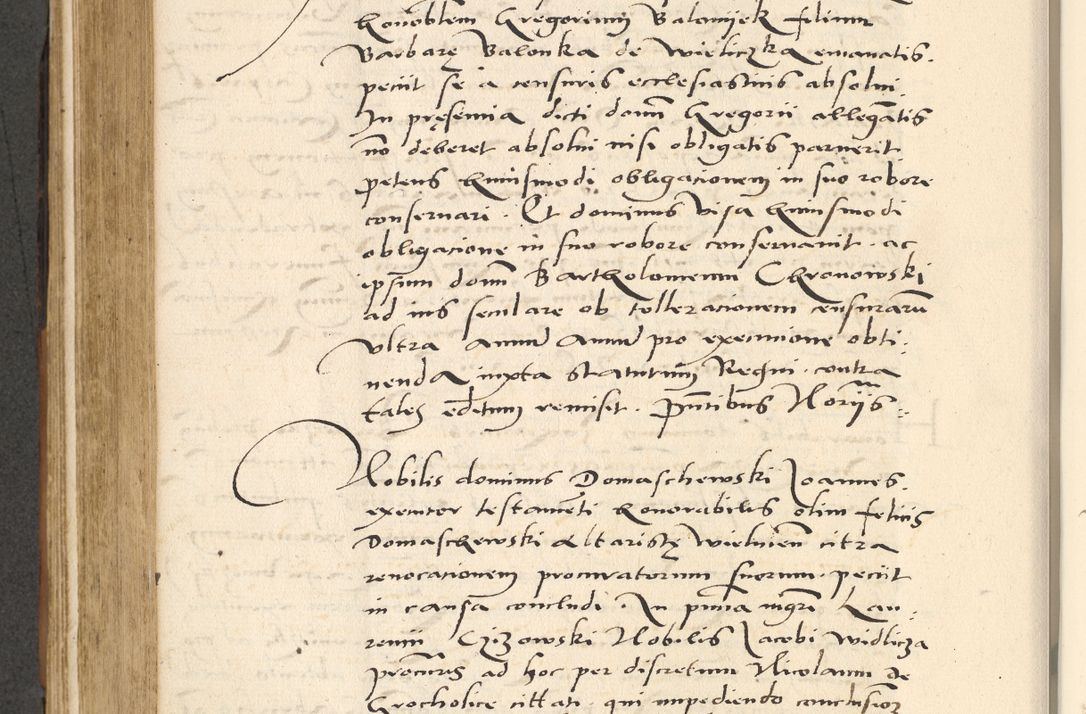 honobłem Gregorium Balonijek filium
Barbarę Balonka de Wieliczka emanatis.
peciit se a censuris ecclesiasticis absolui.
In pręsentia dicti domni Gregorii allegantis
no deberet absolui nisi obligatis paruerit.
petens huiusmodi obligacionem in suo robore
conseruari. Et dominus visa huiusmodi
obligacione in suo robore conseruauit. ac
ipsum domnu Bartholomeum Chronowski
ad ius seculare ob tolleracionem censuraru
vltra annu pro execucione obti-
nenda iuxta statutum Regni. contra
tales editum remisit. Pntibus Noriis.
Nobilis dominus Domaschewski Joannes.
executor testamenti honorabilis olim felicis
Domaschewski altaristę Wielicien citra
reuocacionem procuratorum suorum. peciit
in causa concludi. In pntia mgri Lau-
rentii Czizowski Nobilis Jacobi Widlicza
procuris ad hoc per discretum Nicolaum de
Grocholice cittati. qui impediendo conclusione